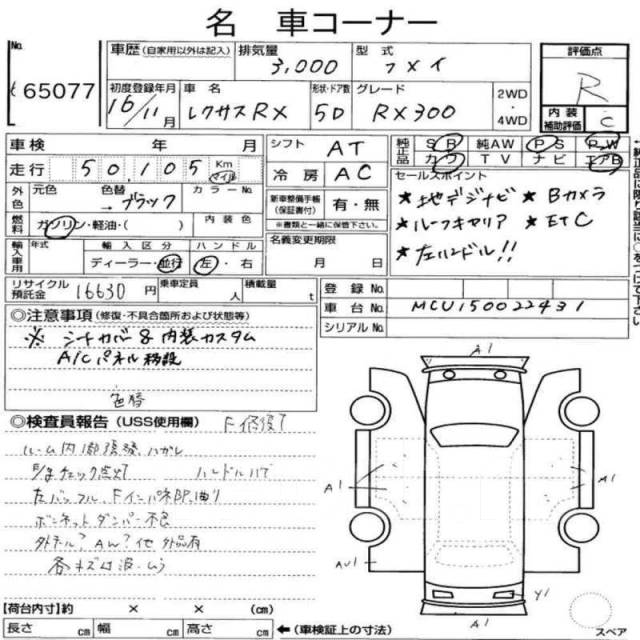 名 車コーナー
No. 65077
車歴 (自家用以外は記入)
排気量 3,000
型式 フメイ
評価点 R
内装補助評価 C
初度登録年月 16/11月
車名 レクサスRX
形状・ドア数 5D
グレード RX300
2WD・4WD
車検 年 月
シフト AT
純正品 SR 純AW PS PW
カワ TV ナビ エアB
走行 50,105 Km マイル
冷房 AC
セールスポイント
★地デジナビ ★Bカメラ
★ルーフキャリア ★ETC
★左ハンドル!!
外色 元色 色替 → ブラック カラーNo.
新車整備手帳(保証書付) 有・無
※書類と一緒に保管下さい。
燃料 ガソリン・軽油・( ) 内装色
名義変更期限 月 日
輸入車用 年式 輸入区分 ハンドル
ディーラー・並行 左・右
リサイクル預託金 16630円 乗車定員 人 積載量 t
登録No.
車台No. MCU150022431
シリアルNo.
◎注意事項 (修復・不具合箇所および状態等)
※ シートカバー&内装カスタム
A/Cパネル移設
色替
◎検査員報告 (USS使用欄) F修復了
ルーム内
チェック点灯 ハンドル
左 Fインパネ 曲り
ボンネットダンパー不良
AW 他 外品有
各キズ凹波・ムラ
A1
A1
A1
AU1
Y1
A1
スペア
【荷台内寸】約 × × (cm)
長さ cm 幅 cm 高さ cm ←(車検証上の寸法)